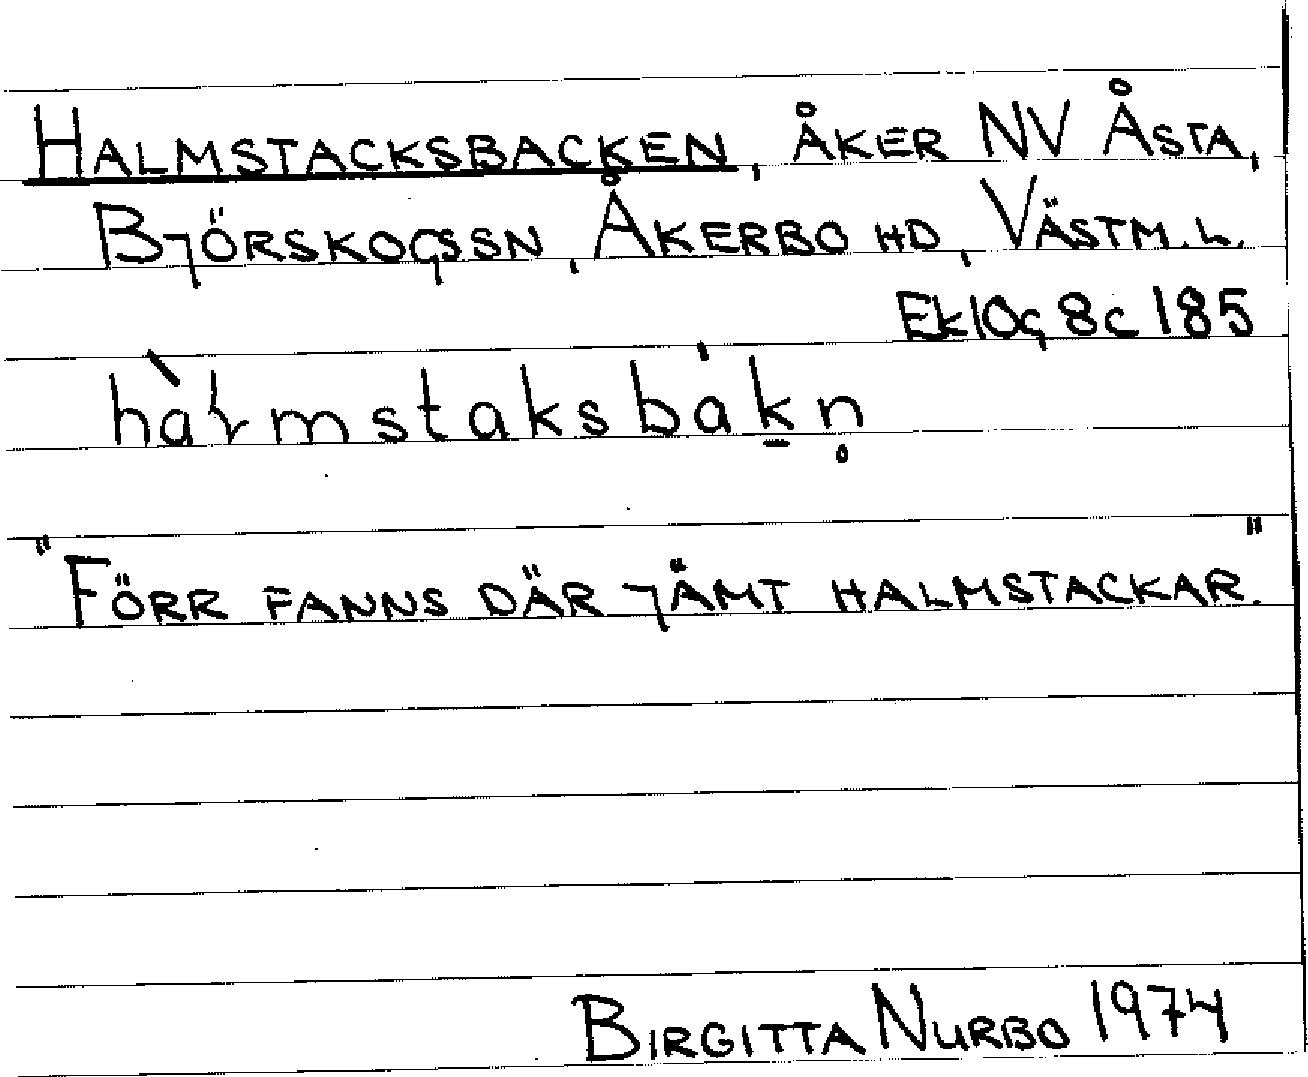 HALMSTACKSBACKEN, ÅKER NV ÅSTA,
BJÖRSKOGSSN, ÅKERBO HD, VÄSTM.L.
Ek10g8c185
hàɽmstaksbákn̥
"FÖRR FANNS DÄR JÄMT HALMSTACKAR."
BIRGITTA NURBO 1974